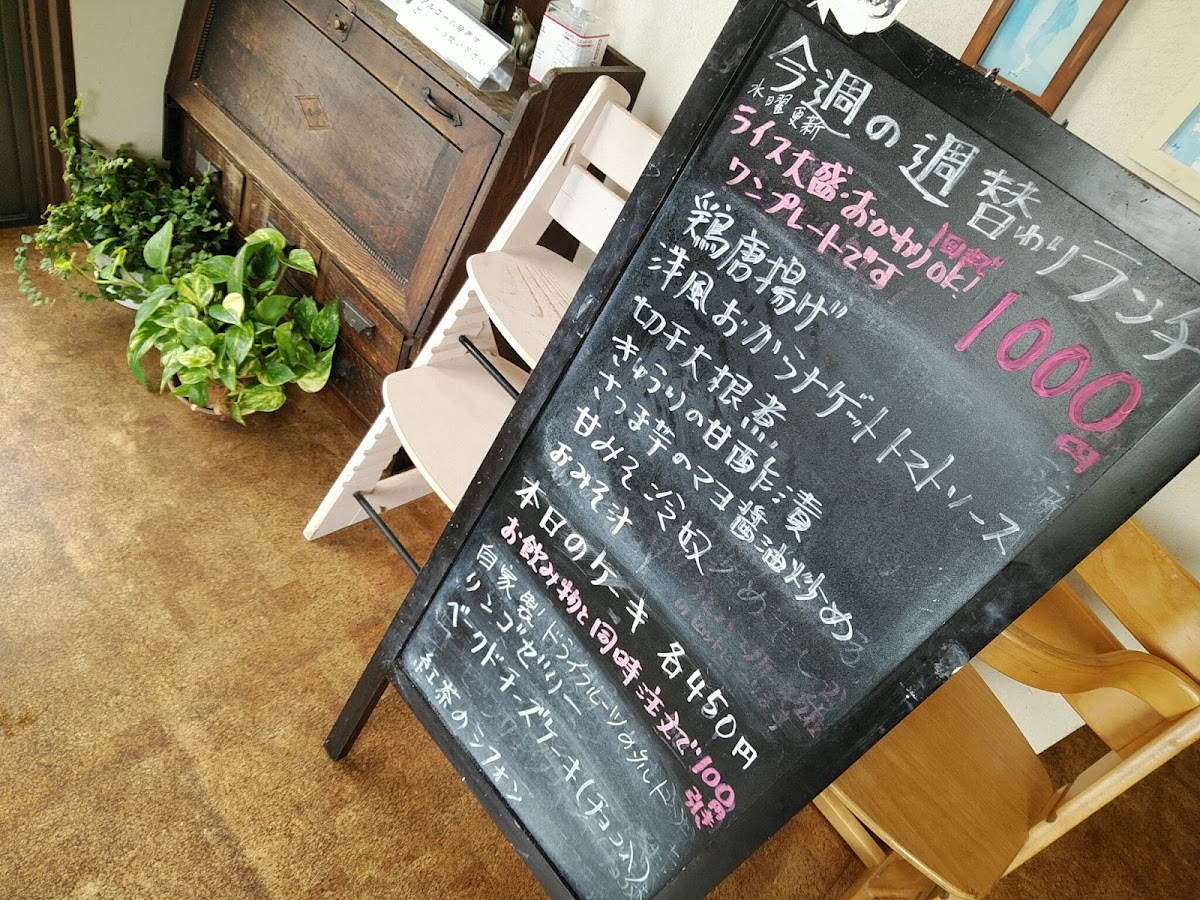 今週の週替わりランチ
水曜更新
ライス大盛・おかわりOK!
1回まで
ワンプレートです
1000円
鶏唐揚げ
洋風おからナゲットトマトソース
切干大根煮
きゅうりの甘酢漬
さつま芋のマヨ醤油炒め
甘みそ冷奴
おみそ汁
本日のケーキ 各450円
お飲み物と同時注文で100円引き
自家製ドライフルーツのタルト
リンゴゼリー
ベークドチーズケーキ(チョコ入)
紅茶のシフォン